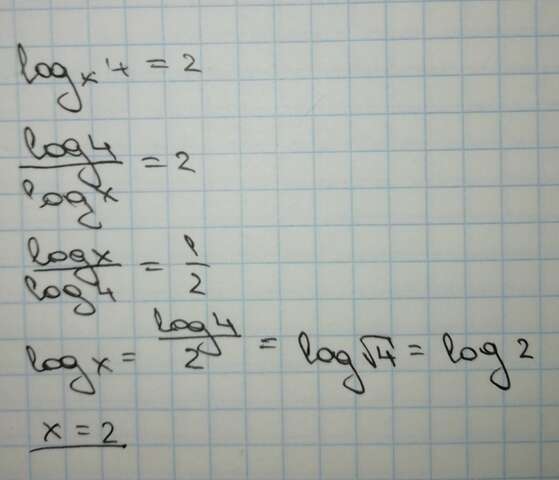 log_x 4 = 2
log 4 / log x = 2
log x / log 4 = 1/2
log x = log 4 / 2 = log √4 = log 2
x = 2